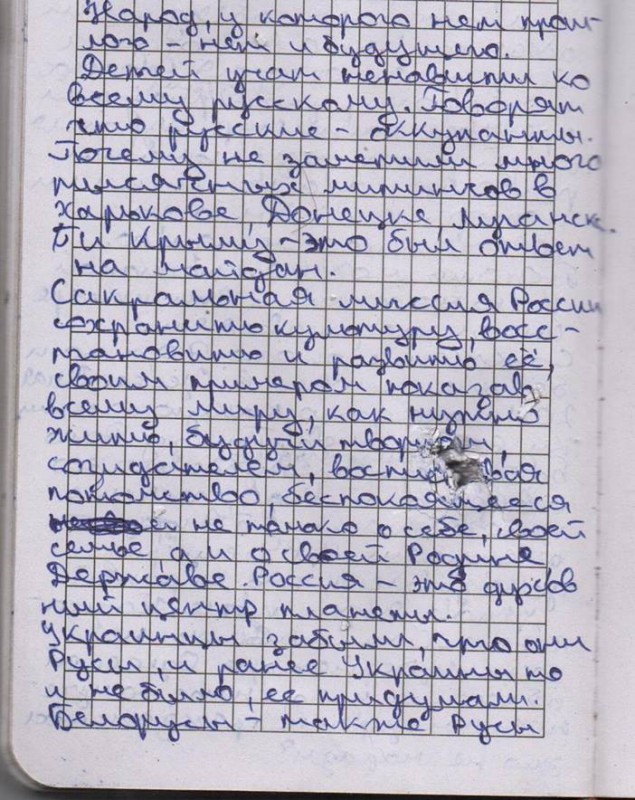 Народ, у которого нет прош-
лого - нет и будущего.
Детей учат ненависти ко
всему русскому. Говорят
что русские - оккупанты.
Почему не заметили много
тысячных митингов в
Харькове, Донецке, Луганск
и Крыму - это был ответ
на майдан.
Сакральная миссия России
сохранить культуру, восс-
тановить и развить её,
своим примером показав
всему миру, как нужно
жить, будучи творцом,
созидателем,
потомство, беспокоящееся
не только о себе, своей
семье а и о своей Родине
Державе. Россия - это духов
ный центр планеты.
Украинцы забыли, что они
Русы, и ранее Украины то
и не было, её придумали.
Белорусы - также Русы